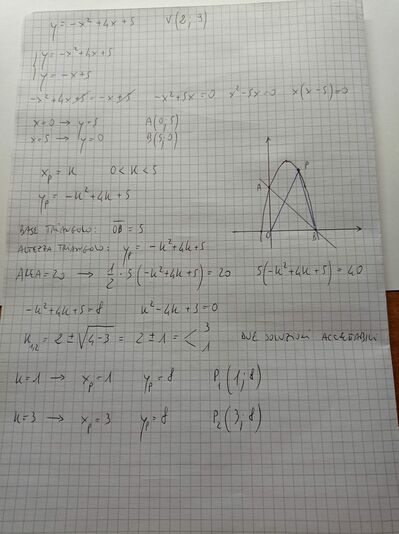 y = -x² + 4x + 5 V(2, 3)
{ y = -x² + 4x + 5
{ y = -x + 5
-x² + 4x + 5 = -x + 5 -x² + 5x = 0 x² - 5x = 0 x(x - 5) = 0
x = 0 → y = 5 A(0, 5)
x = 5 → y = 0 B(5, 0)
x_P = K 0 < K < 5
y_P = -K² + 4K + 5
A P O B
BASE TRIANGOLO: OB = 5
ALTEZZA TRIANGOLO: y_P = -K² + 4K + 5
AREA = 20 → 1/2 · 5(-K² + 4K + 5) = 20 5(-K² + 4K + 5) = 40
-K² + 4K + 5 = 8 K² - 4K + 3 = 0
K₁,₂ = 2 ± √(4-3) = 2 ± 1 = < 3 1 DUE SOLUZIONI ACCETTABILI
K = 1 → x_P = 1 y_P = 8 P₁(1; 8)
K = 3 → x_P = 3 y_P = 8 P₂(3; 8)